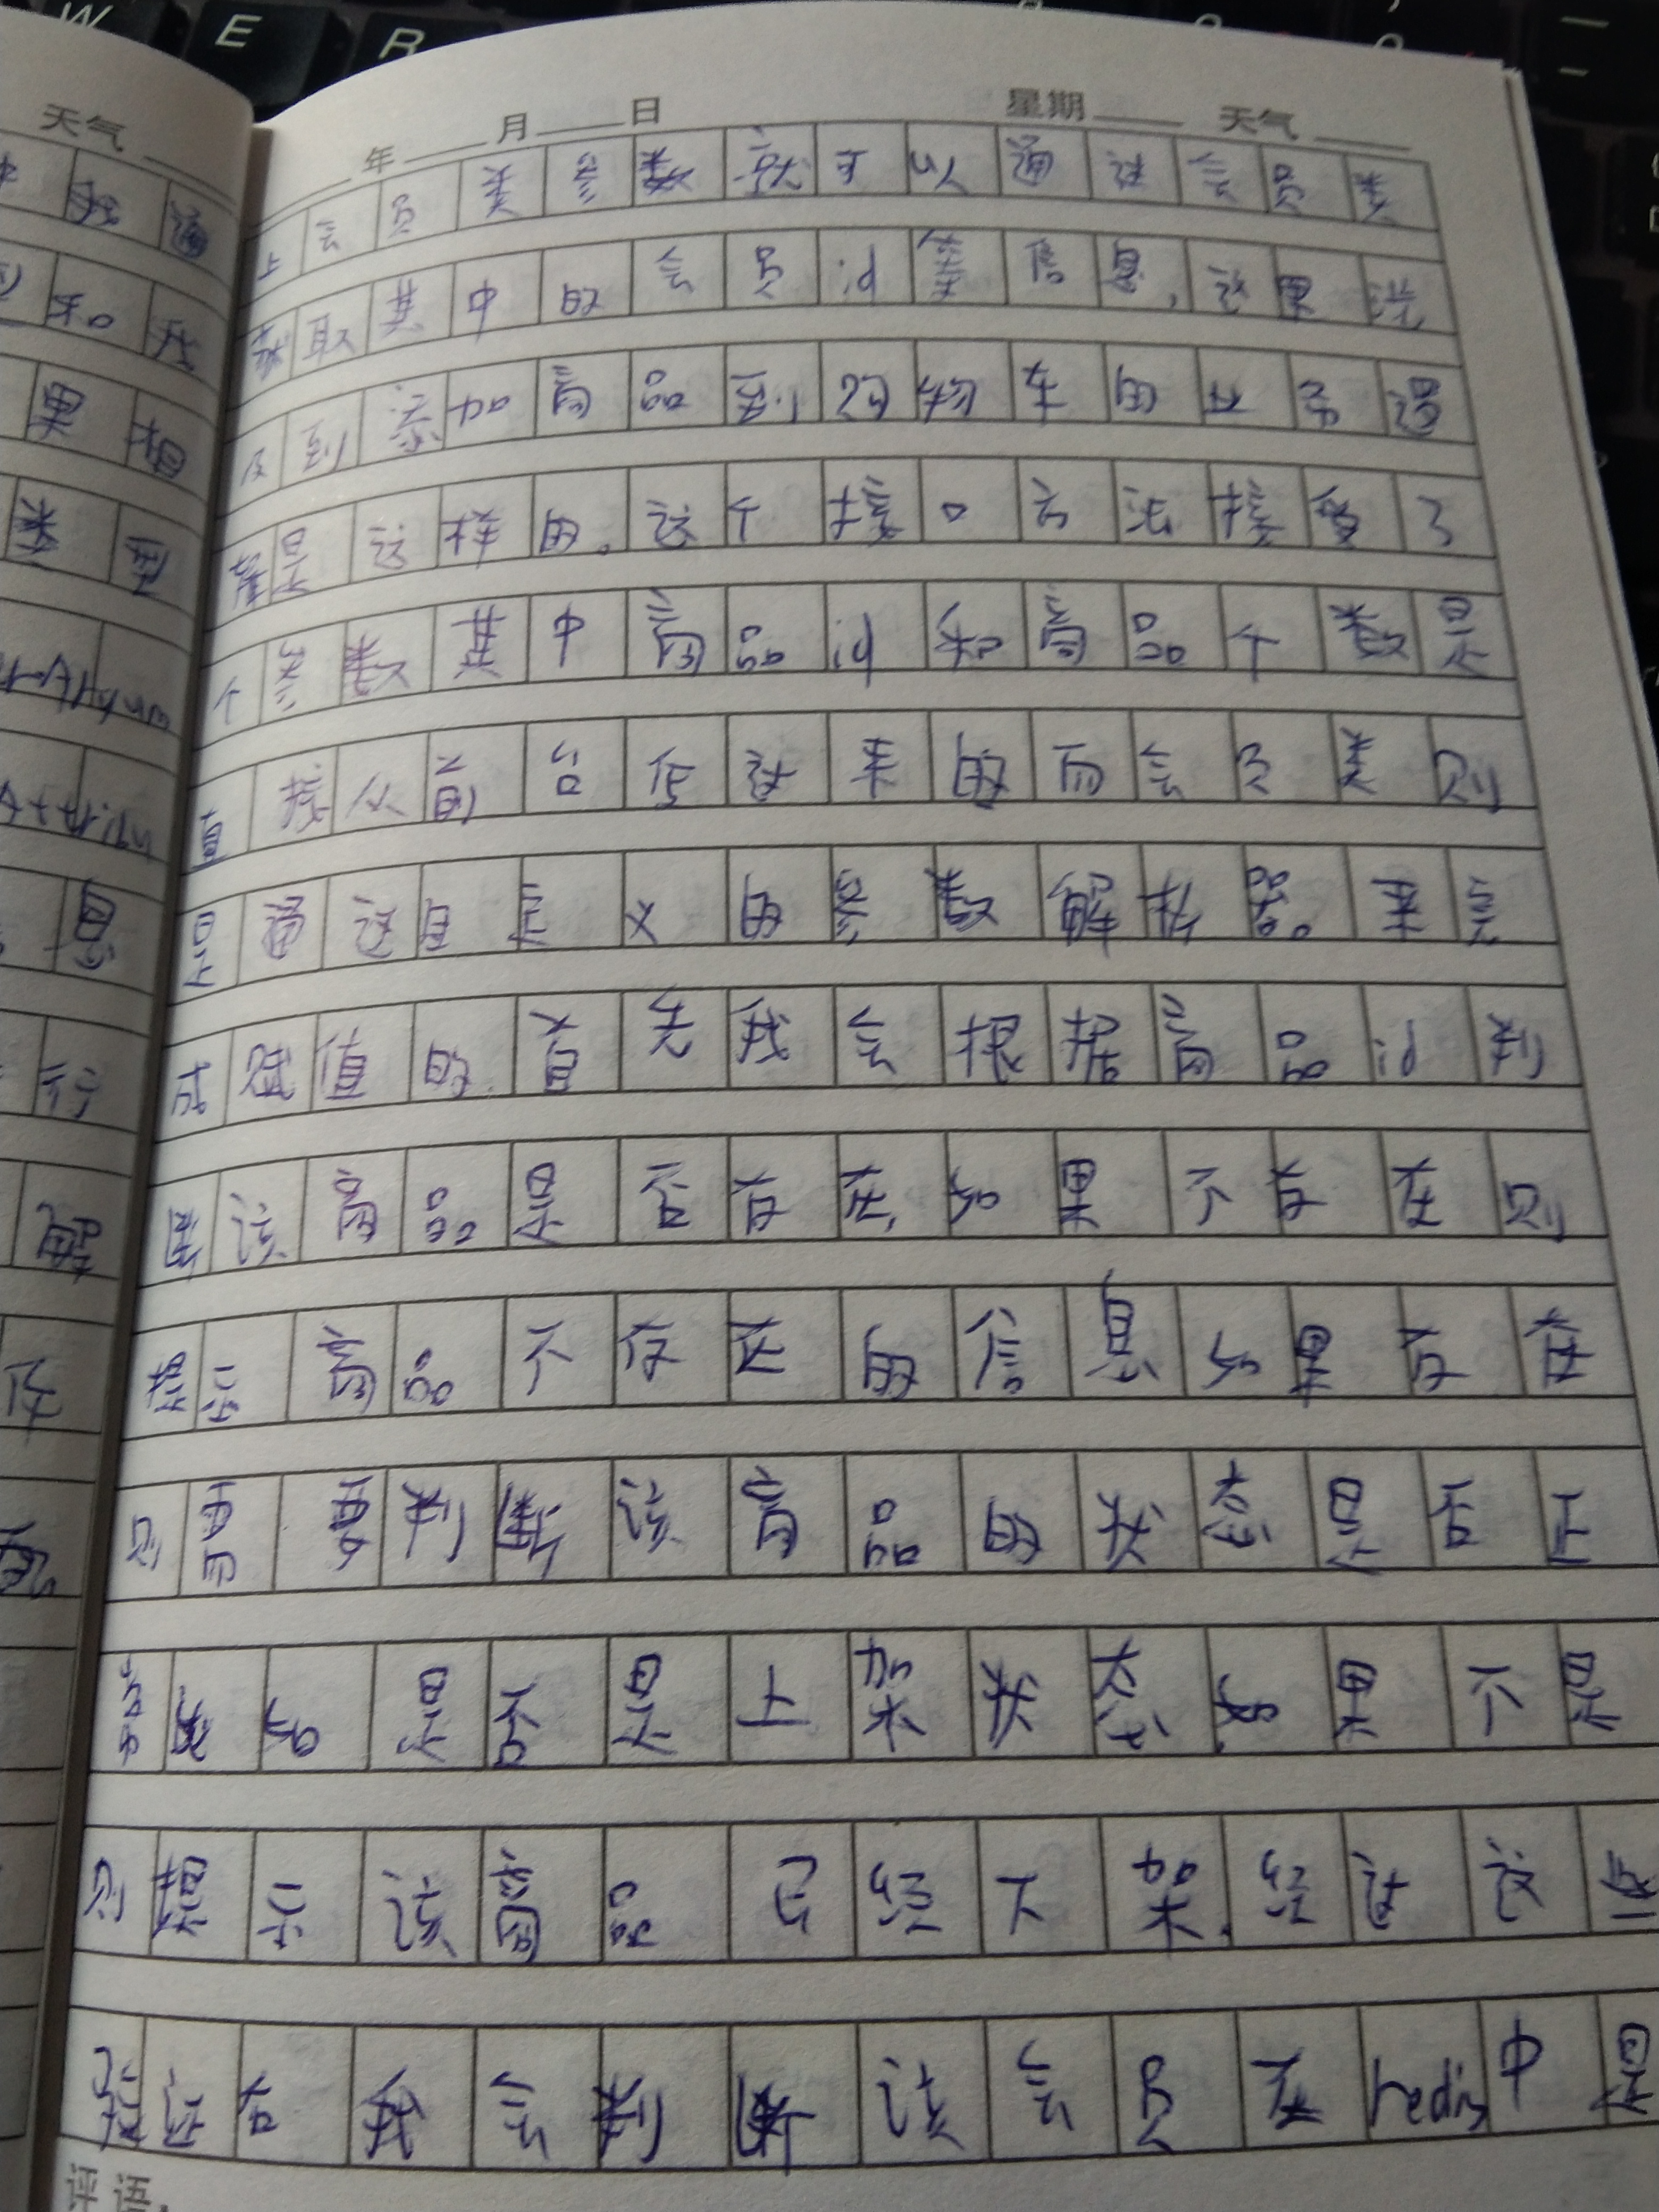 W E R
天气
年 月 日 星期 天气
上会员类参数就可以通过会员类
获取其中的会员id等信息,这里说
及到添加商品到购物车的业务逻
辑是这样的。这个接口方法接受了
个参数其中商品id和商品个数是
直接从前台传过来的而会员类则
是 这 定义的参数解析器。来完
成赋值的首先我会根据商品id判
断该商品是否存在,如果不存在则
提示商品不存在的信息如果存在
则再要判断该商品的状态是否正
是否是上架状态,如果不是
则提示该商品已经下架.经过这些
我会判断该会员在redis中是
评语.
通
和我
果相
类型
息
行
解